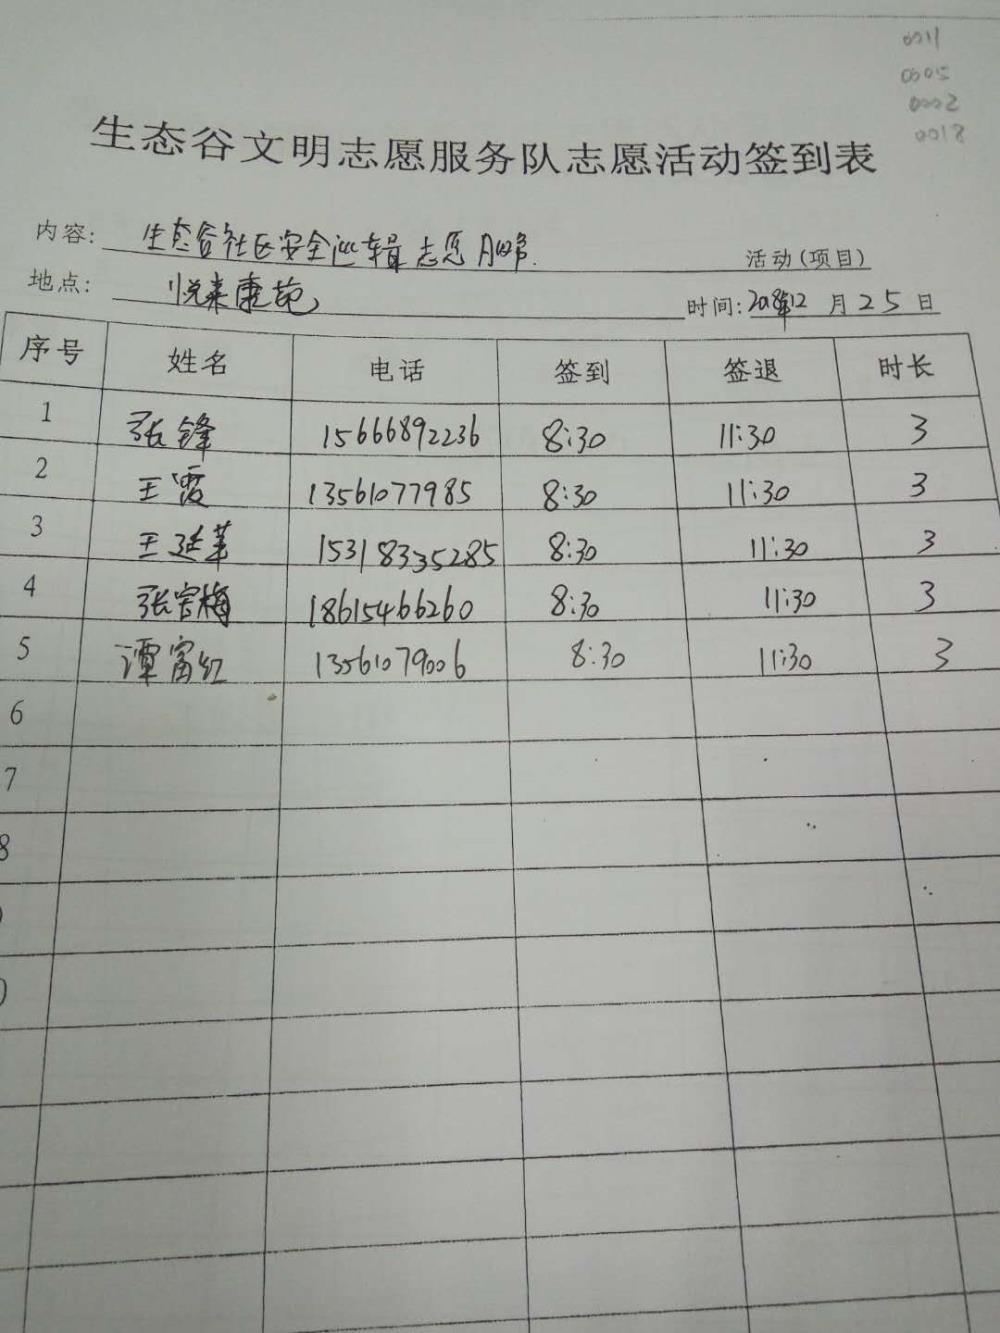 0011
0005
0002
0018
生态谷文明志愿服务队志愿活动签到表
内容: 生态谷社区安全巡辑志愿服务. 活动(项目)
地点: 悦来康苑 时间: 2018年12月25日
序号 姓名 电话 签到 签退 时长
1 张锋 15666892236 8:30 11:30 3
2 王霞 13561077985 8:30 11:30 3
3 王延华 15318335285 8:30 11:30 3
4 张宝梅 18615466260 8:30 11:30 3
5 谭富红 13561079006 8:30 11:30 3
6
7
8